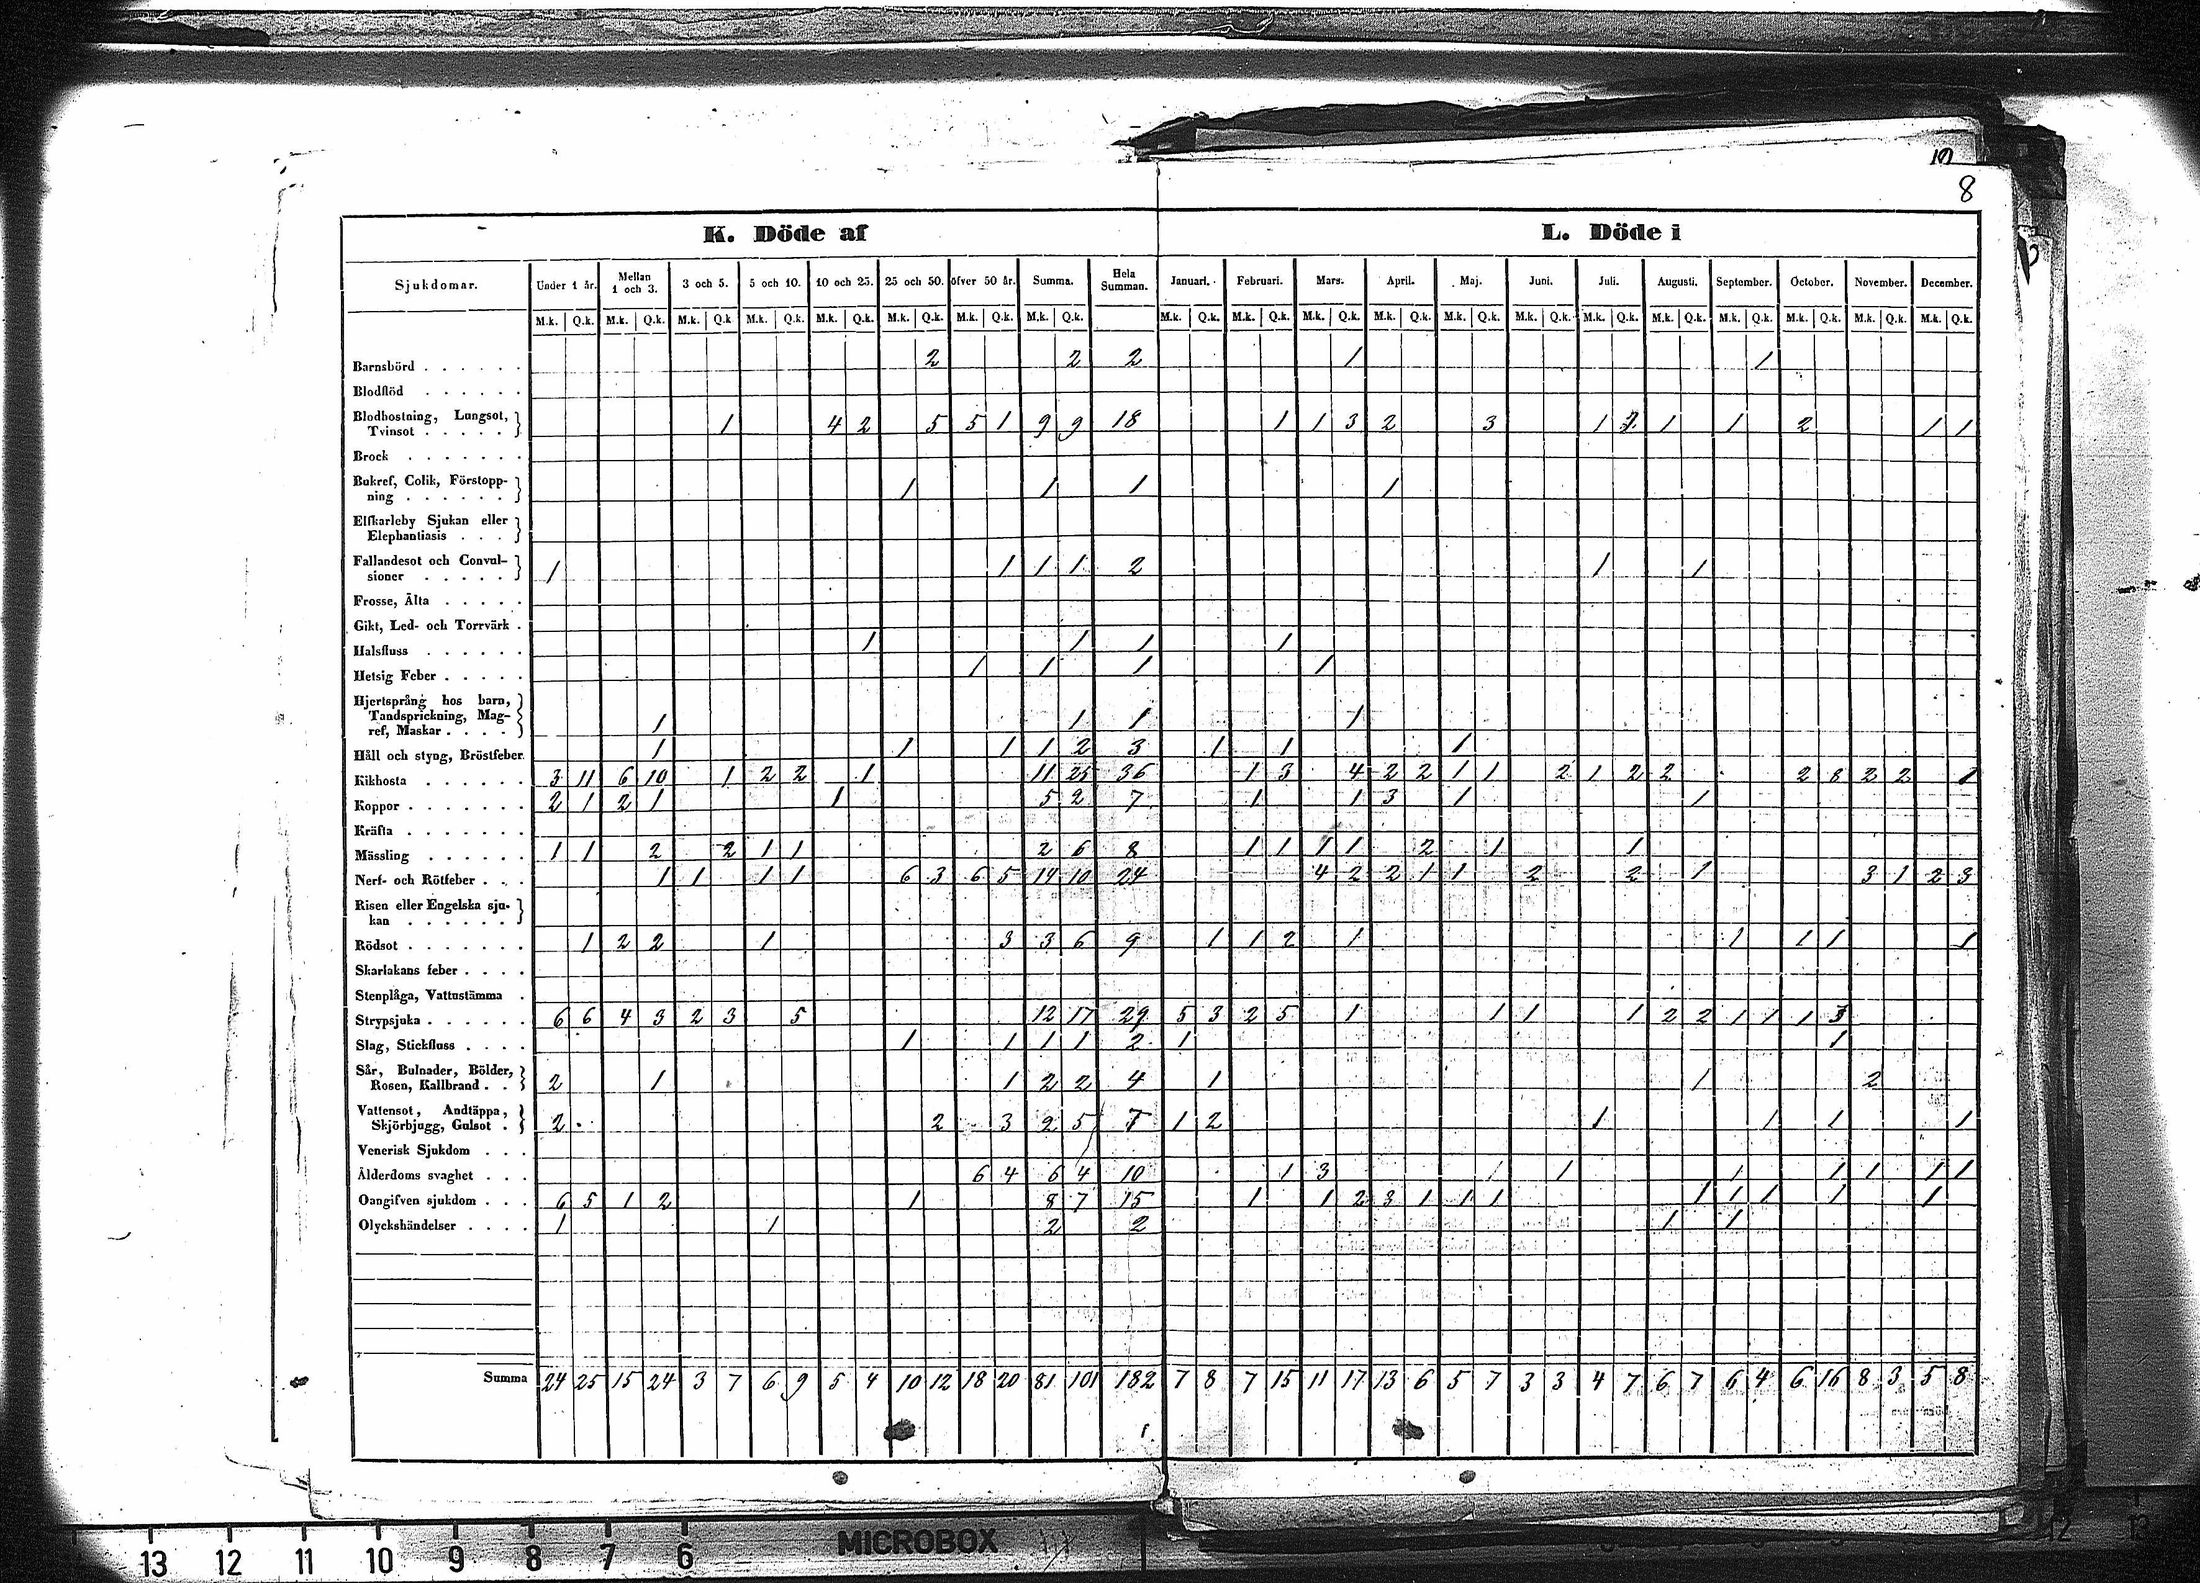 10
8
K. Döde af L. Döde i
Sjukdomar. Under 1 år. Mellan 1 och 3. 3 och 5. 5 och 10. 10 och 25. 25 och 50. öfver 50 år. Summa. Hela Summan. Januari. Februari. Mars. April. Maj. Juni. Juli. Augusti. September. October. November. December.
M.k. Q.k. M.k. Q.k. M.k. Q.k. M.k. Q.k. M.k. Q.k. M.k. Q.k. M.k. Q.k. M.k. Q.k. M.k. Q.k. M.k. Q.k. M.k. Q.k. M.k. Q.k. M.k. Q.k. M.k. Q.k. M.k. Q.k. M.k. Q.k. M.k. Q.k. M.k. Q.k. M.k. Q.k. M.k. Q.k.
Barnsbörd . . . . . . 2 2 2 1 1
Blodflöd . . . . . .
Blodhostning, Lungsot,
Tvinsot . . . . . 1 4 2 5 5 1 9 9 18 1 1 3 2 3 1 2 1 1 2 1 1
Brock . . . . . . .
Bukref, Colik, Förstopp-
ning . . . . . . 1 1 1 1
Elfkarleby Sjukan eller
Elephantiasis . . .
Fallandesot och Convul-
sioner . . . . . 1 1 1 1 2 1 1
Frosse, Älta . . . . .
Gikt, Led- och Torrvärk .
Halsfluss . . . . . . 1 1 1 1
Hetsig Feber . . . . . 1 1 1 1
Hjertsprång hos barn,
Tandsprickning, Mag-
ref, Maskar . . . . 1 1 1 1
Håll och styng, Bröstfeber. 1 1 1 1 2 3 1 1 1
Kikhosta . . . . . . 3 11 6 10 1 2 2 1 11 25 36 1 3 4 2 2 1 1 2 1 2 2 2 8 2 2 1
Koppor . . . . . . . 2 1 2 1 1 5 2 7 1 1 3 1 1
Kräfta . . . . . . .
Mässling . . . . . . 1 1 2 2 1 1 2 6 8 1 1 1 1 2 1 1
Nerf- och Rötfeber . . . 1 1 1 1 6 3 6 5 14 10 24 4 2 2 1 1 2 2 1 3 1 2 3
Risen eller Engelska sju-
kan . . . . . .
Rödsot . . . . . . . 1 2 2 1 3 3 6 9 1 1 2 1 1 1 1 1
Skarlakans feber . . . .
Stenplåga, Vattustämma .
Strypsjuka . . . . . . 6 6 4 3 2 3 5 12 17 29 5 3 2 5 1 1 1 1 2 2 1 1 1 3
Slag, Stickfluss . . . . 1 1 1 1 2 1 1
Sår, Bulnader, Bölder,
Rosen, Kallbrand . . 2 1 1 2 2 4 1 1 2
Vattensot, Andtäppa,
Skjörbjugg, Gulsot . 2 2 3 2 5 7 1 2 1 1 1 1
Venerisk Sjukdom . . .
Ålderdoms svaghet . . . 6 4 6 4 10 1 3 1 1 1 1 1 1 1
Oangifven sjukdom . . . 6 5 1 2 1 8 7 15 1 1 2 3 1 1 1 1 1 1 1 1
Olyckshändelser . . . . 1 1 2 2 1 1
Summa 24 25 15 24 3 7 6 9 5 4 10 12 18 20 81 101 182 7 8 7 15 11 17 13 6 5 7 3 3 4 7 6 7 6 4 6 16 8 3 5 8
MICROBOX
13 12 11 10 9 8 7 6 12 13